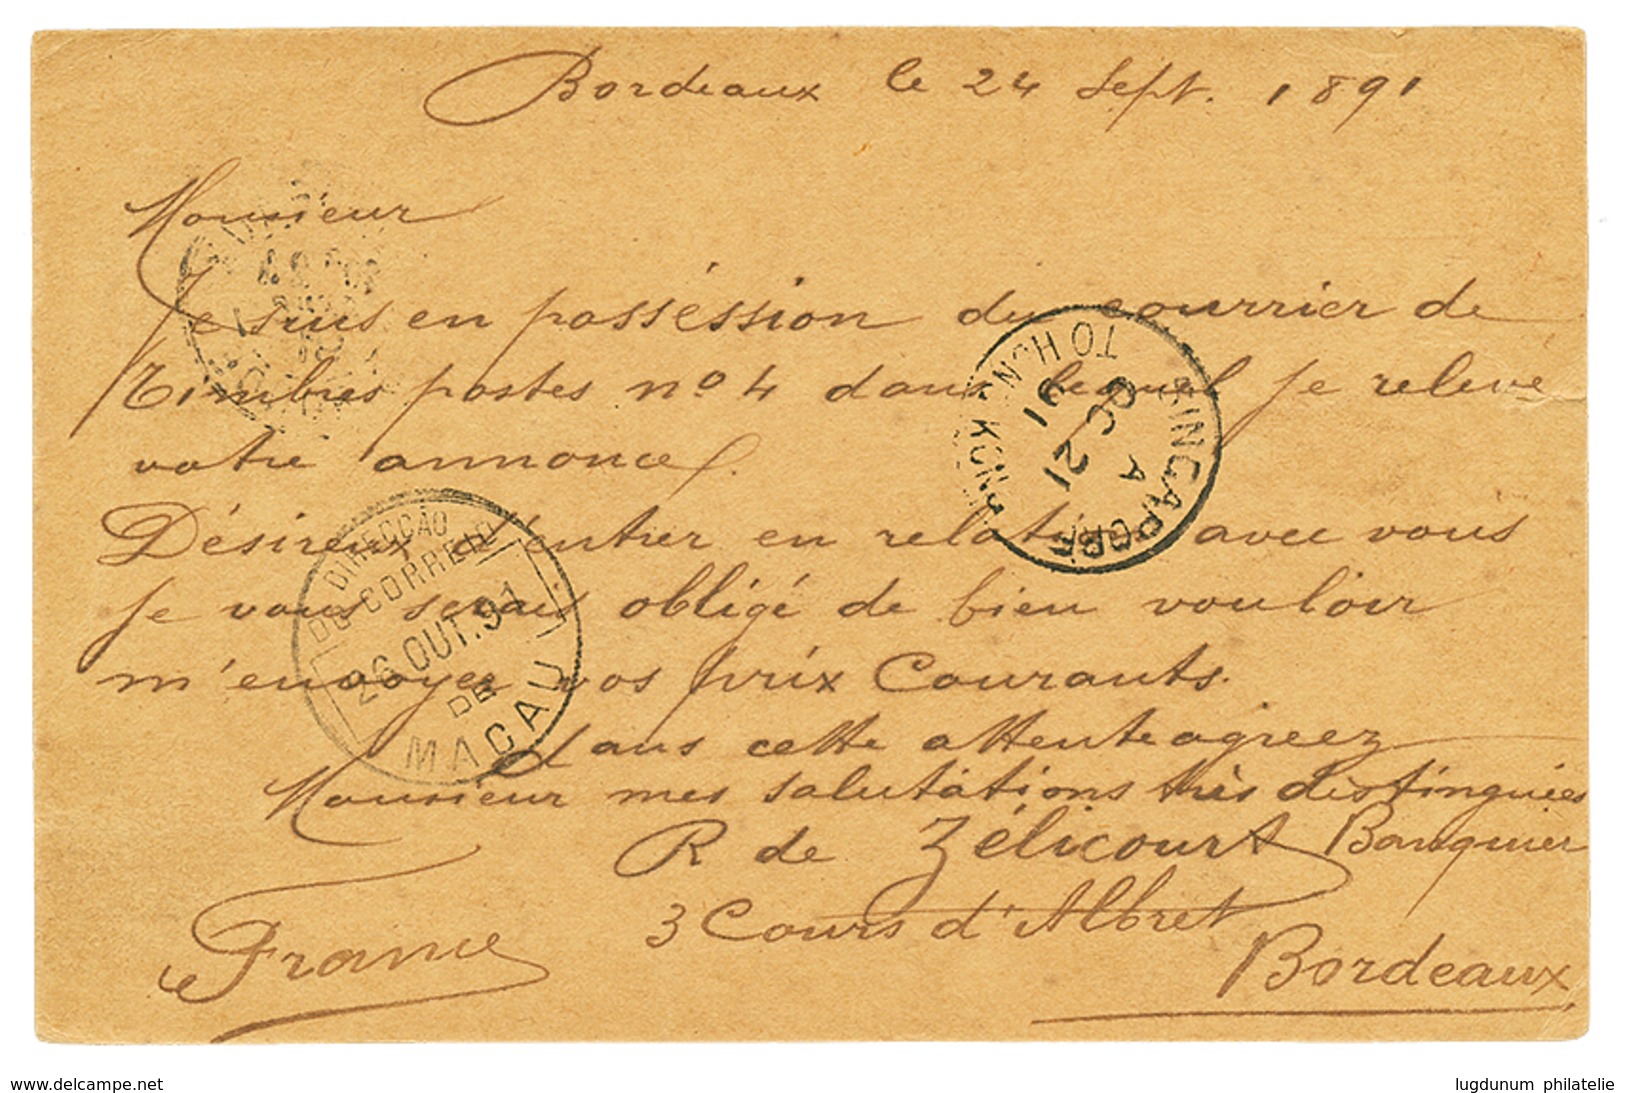 Bordeaux le 24 Sept. 1891
Monsieur
Je suis en posséssion du courrier de
Timbres postes no 4 dans lequel je relève
votre annonce.
Désireux d'entrer en relation avec vous
je vous serais obligé de bien vouloir
m'envoyer vos prix Courants.
dans cette attente agreez
Monsieur mes salutations très distinguées
R de Zélicourt Banquier
3 Cours d'Albret
France Bordeaux
SINGAPORE TO HONG KONG
A
OC 21
91
DIRECÇÃO
DO CORREIO
26 OUT. 91
DE
MACAU
www.delcampe.net
lugdunum philatelie